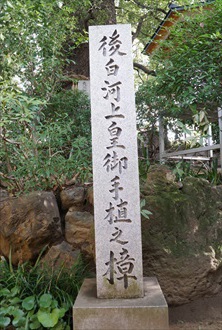 後白河上皇御手植之樟